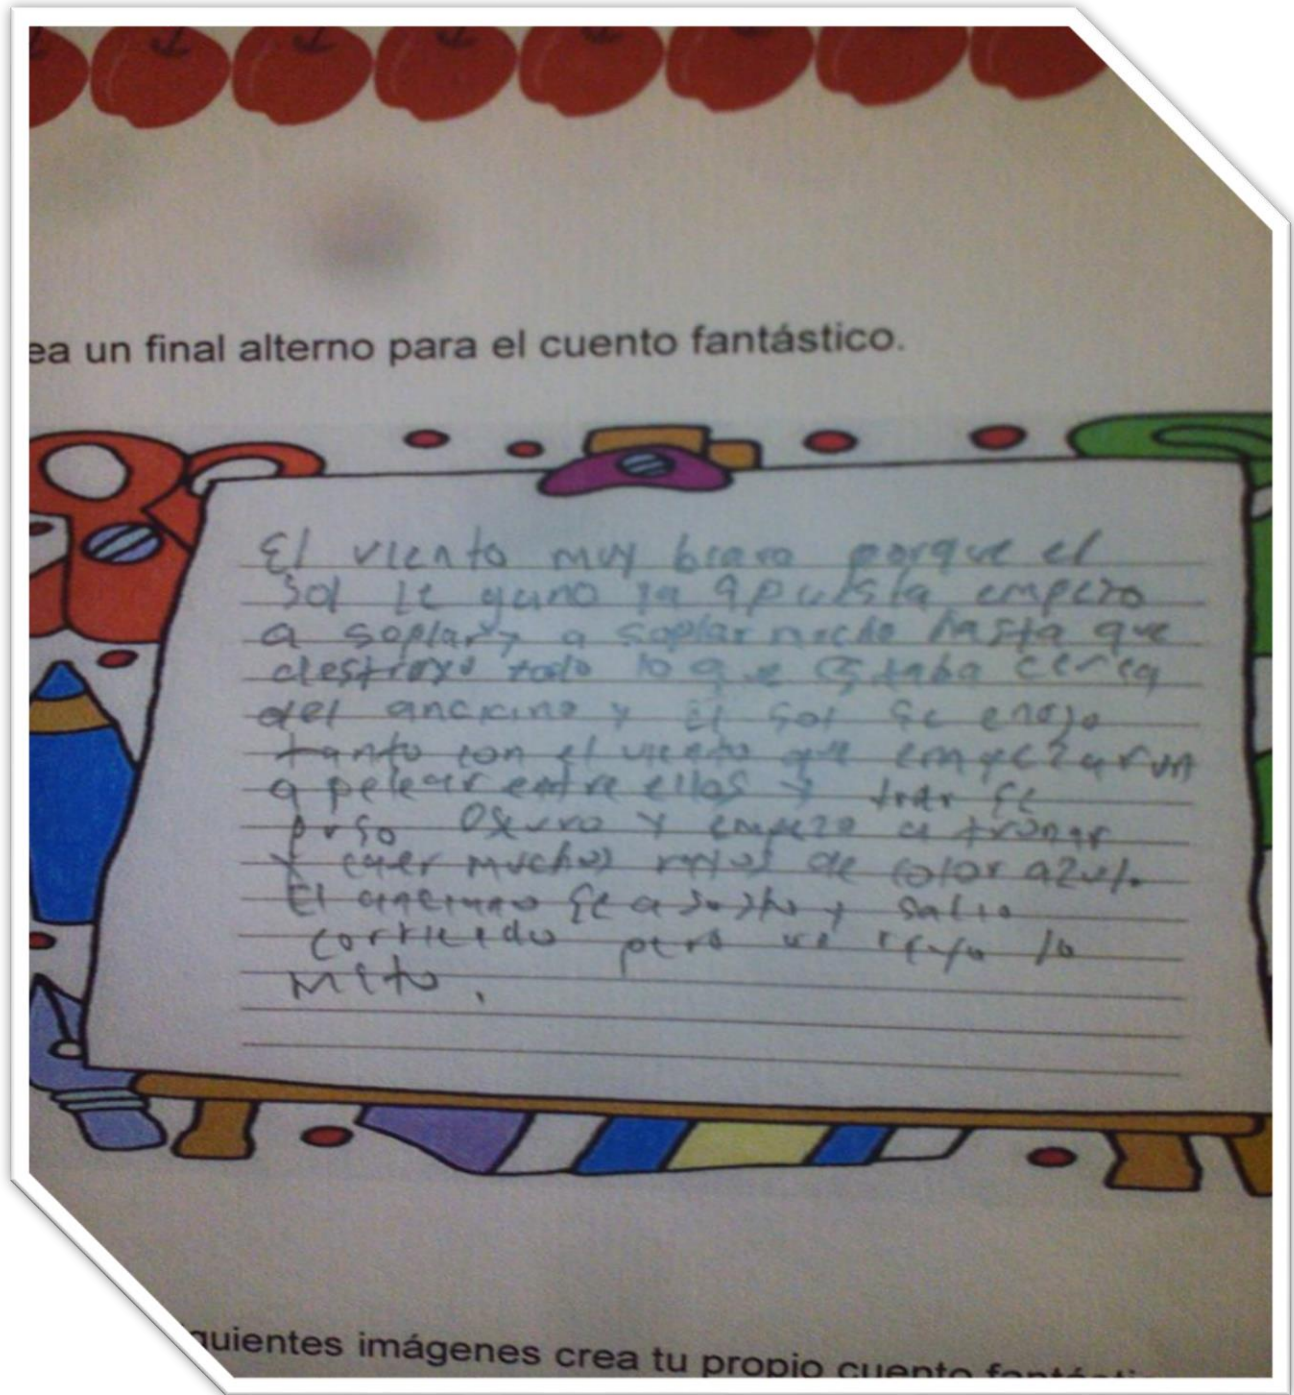 ea un final alterno para el cuento fantástico.
El viento muy bravo porque el
Sol le gano la apuesta empezo
a soplar y a soplar mucho hasta que
destroyo todo lo que estaba cerca
del anciano y El Sol se enojo
tanto con el viento que empezaron
a pelear entre ellos y se
puso Oscuro y empezo a tronar
y caer muchos rayos de color azul.
El anciano se asusto y salio
corriendo pero un rayo lo
mato.
guientes imágenes crea tu propio cuento